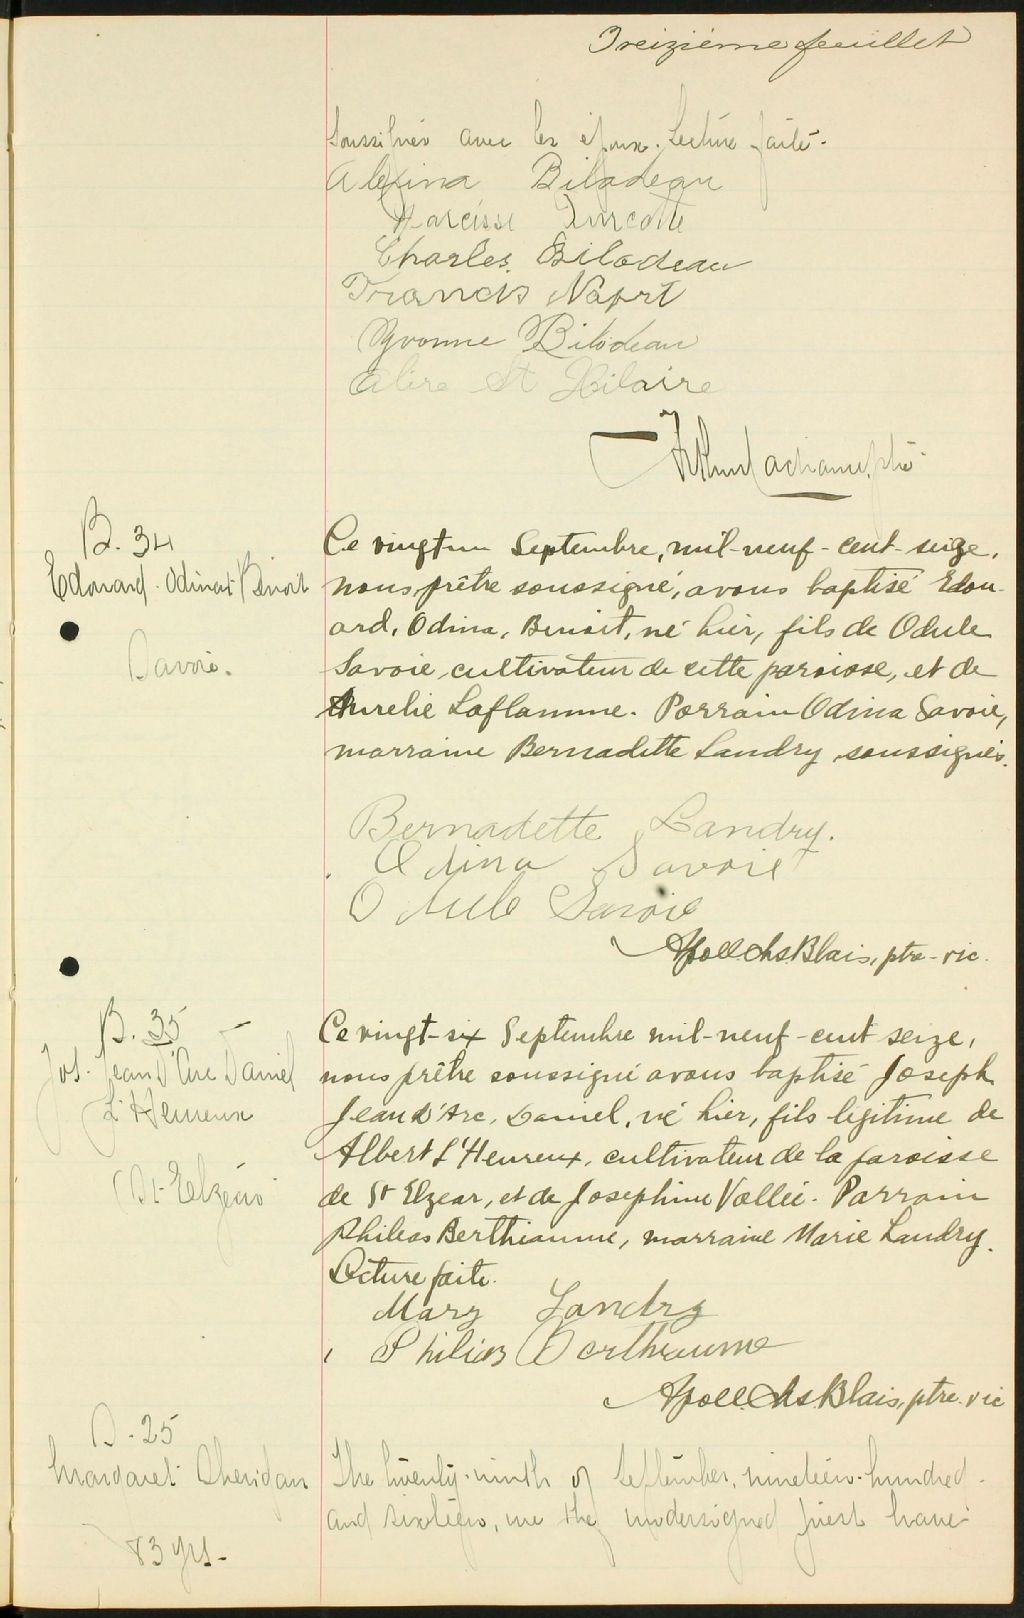 Treizième feuillet
soussignés avec les époux. Lecture faite.
Alexina Bilodeau
Narcisse Turcotte
Charles Bilodeau
Francis
Yvonne Bilodeau
St Hilaire
ptre
B. 34
Edouard Odina Benoit
Savoie.
Ce vingt un Septembre, mil-neuf-cent-seize,
nous prêtre soussigné, avons baptisé Edou-
ard, Odina, Benoit, né hier, fils de Odule
Savoie, cultivateur de cette paroisse, et de
Aurelie Laflamme. Parrain Odina Savoie,
marraine Bernadette Landry, soussignés.
Bernadette Landry.
Odina Savoie
Odule Savoie
Apoll. Chs. Blais, ptre-vic.
B. 35
Jos. Jean D'Arc Daniel
L'Heureux
(St-Elzéar)
Ce vingt-six Septembre mil-neuf-cent seize,
nous prêtre soussigné avons baptisé Joseph
Jean D'Arc, Daniel, né hier, fils légitime de
Albert L'Heureux, cultivateur de la paroisse
de St Elzear, et de Josephine Vallée. Parrain
Phileas Berthiaume, marraine Marie Landry.
Lecture faite.
Mary Landry
Philias Berthiaume
Apoll. Chs. Blais, ptre. vic
S. 25
Margaret Sheridan
83 yrs.
The twenty-ninth of September, nineteen-hundred
and sixteen, we the undersigned priest have